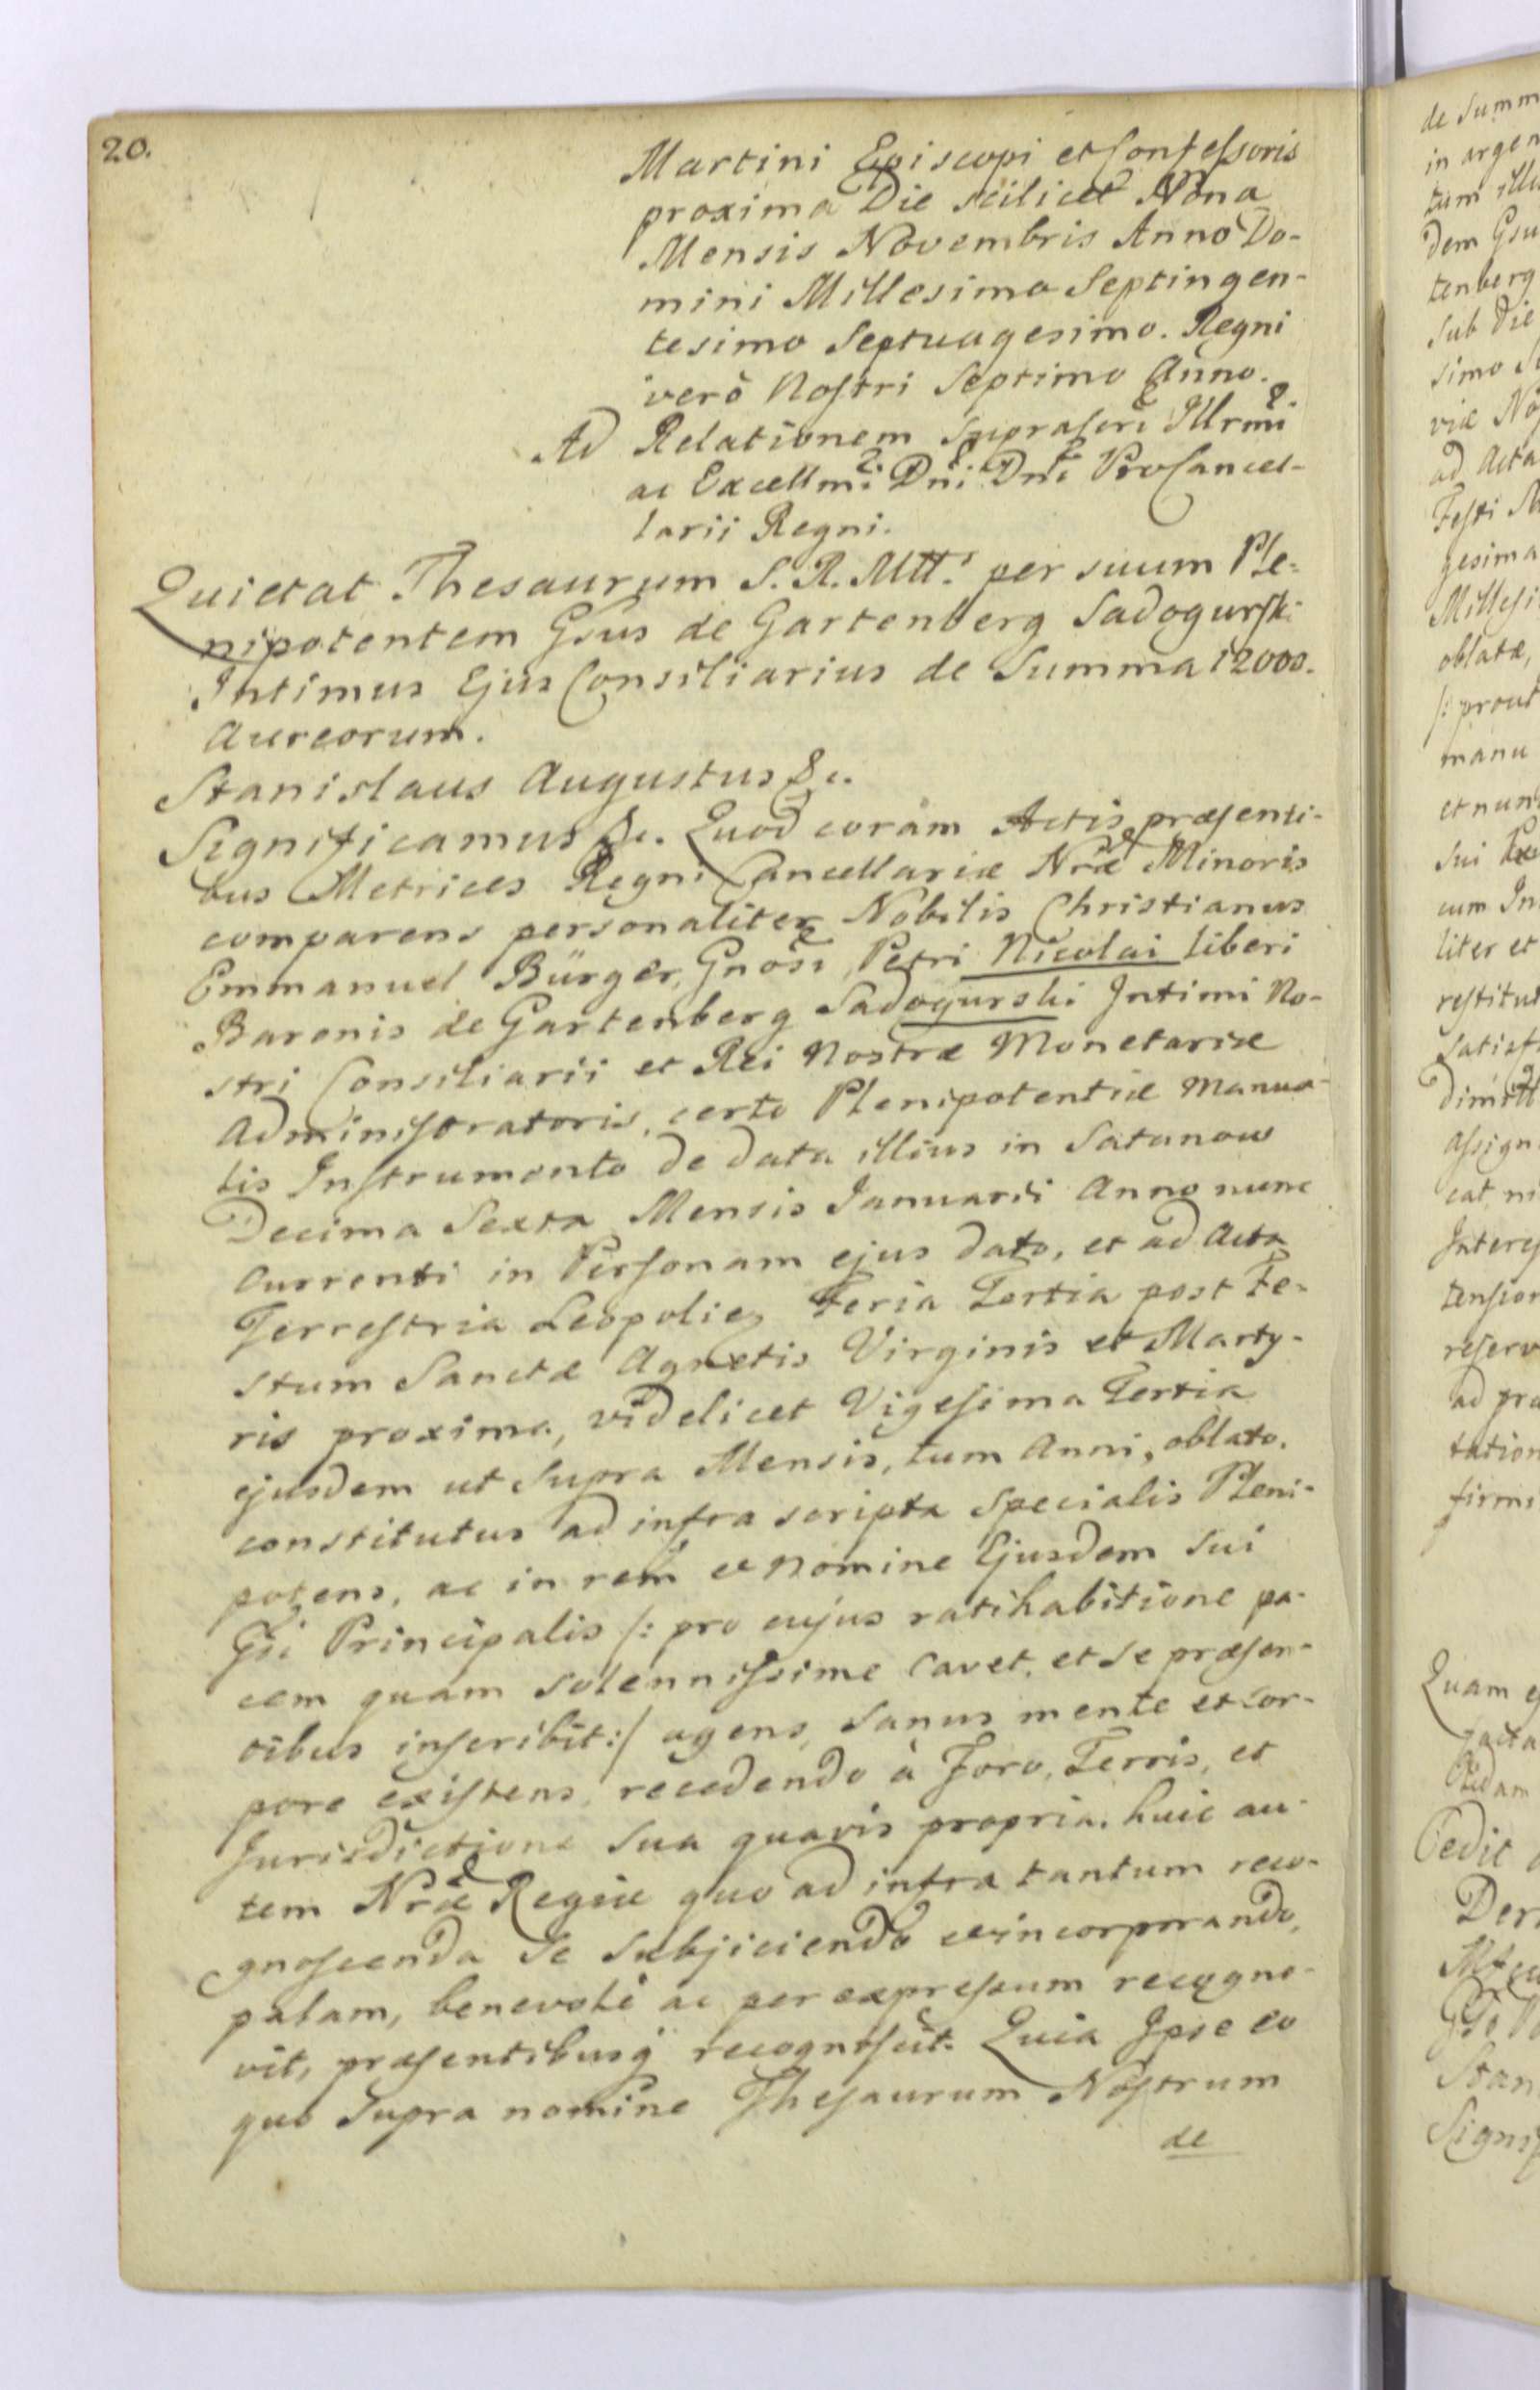 20.
Martini Episcopi et Confessoris
proxima Die scilicet Nona
Mensis Novembris Anno Do-
mini Millesimo Septingen-
tesimo Septuagesimo. Regni
verò Nostri Septimo Anno.
Ad Relationem suprascri Illrmi
ac Excellmi Dni Dni ProCancel-
larii Regni.
Quietat Thesaurum S. R. Mtt. per suum Ple-
nipotentem Gsus de Gartenberg Sadogurski
Intimus Ejus Consiliarius de Summa 12000.
Aureorum.
Stanislaus Augustus &c.
Significamus &c. Quod coràm Actis præsenti-
bus Metrices Regni Cancellariæ Nræ Minoris
comparens personaliter Nobilis Christianus
Emmanuel Bürger, Gnosi Petri Nicolai liberi
Baronis de Gartenberg Sadogurski Intimi No-
stri Consiliarii et Rei Nostræ Monetariæ
Administratoris, certo Plenipotentiæ Manua-
lis Instrumento de data illius in Satanow
Decima Sexta Mensis Januarii Anno nunc
Currenti in Personam ejus dato, et ad Acta
Terrestria Leopolien Feria Tertia post Fe-
stum Sanctæ Agnetis Virginis et Marty-
ris proxima, videlicet Vigesima Tertia
ejusdem ut supra Mensis, tum Anni, oblato.
constitutus ad infra scripta specialis Pleni-
potens, ac in rem et Nomine Ejusdem sui
Gsi Principalis /: pro cujus ratihabitione pa-
cem quam solennissime cavet, et se præsen-
tibus inscribit :/ agens, sanus mente et cor-
pore existens, recedendo à Foro, Terris, et
Jurisdictione sua quavis propria. huic au-
tem Nræ Regiæ quo ad infra tantum reco-
gnoscenda se subjiciendo et incorporando,
palam, benevolè ac per expressum recogno-
vit, præsentibusq recognoscit. Quia Ipse eo
quo supra nomine Thesaurum Nostrum
de
de Summ
in argen
tum illu
dem Gsu
tenberg
sub Die
simo
viæ
ad Acta
Festi
gesima
Millesi
oblatæ,
/: prout
manu
et nun
sui
cum In
liter et
restitu
satisf
dimitt
assign
eat ni
Interes
tension
reserv
ad
tation
firmi
Quam
Cedit
Stan
Signif